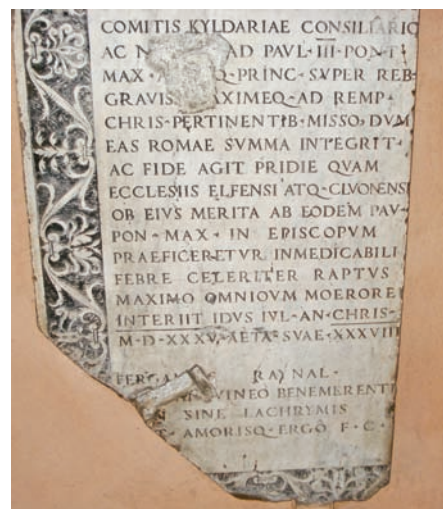 COMITIS KYLDARIAE CONSILIARIO
AC AD PAVL·III·PONT
MAX· PRINC·SVPER REB
GRAVIS AD REMP
CHRIS·PERTINENTIB·MISSO,DVM
EAS ROMAE SVMMA INTEGRIT·
AC FIDE AGIT PRIDIE QVAM
ECCLESIIS ELFENSI ATQ·CLVONENSI
OB EIVS MERITA AB EODEM PAV·
PON·MAX·IN EPISCOPVM
PRAEFICERETVR INMEDICABILI
FEBRE CELERITER RAPTVS
MAXIMO OMNIOVM MOERORE
INTERIIT IDVS IVL·AN·CHRIS·
M·D·XXXV·AETA·SVAE·XXXVIII
RAYNAL·
VINEO BENEMERENTI
SINE LACHRYMIS
AMORISQ·ERGO F·C·